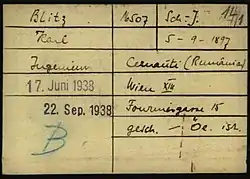 Blitz N507 Sch-J. 141
Karl 5-9-1897
Ingenieur Cernauti (Rumänien)
17. Juni 1938 Wien XIII
22. Sep. 1938 15
B gesch. - Öe. isr.